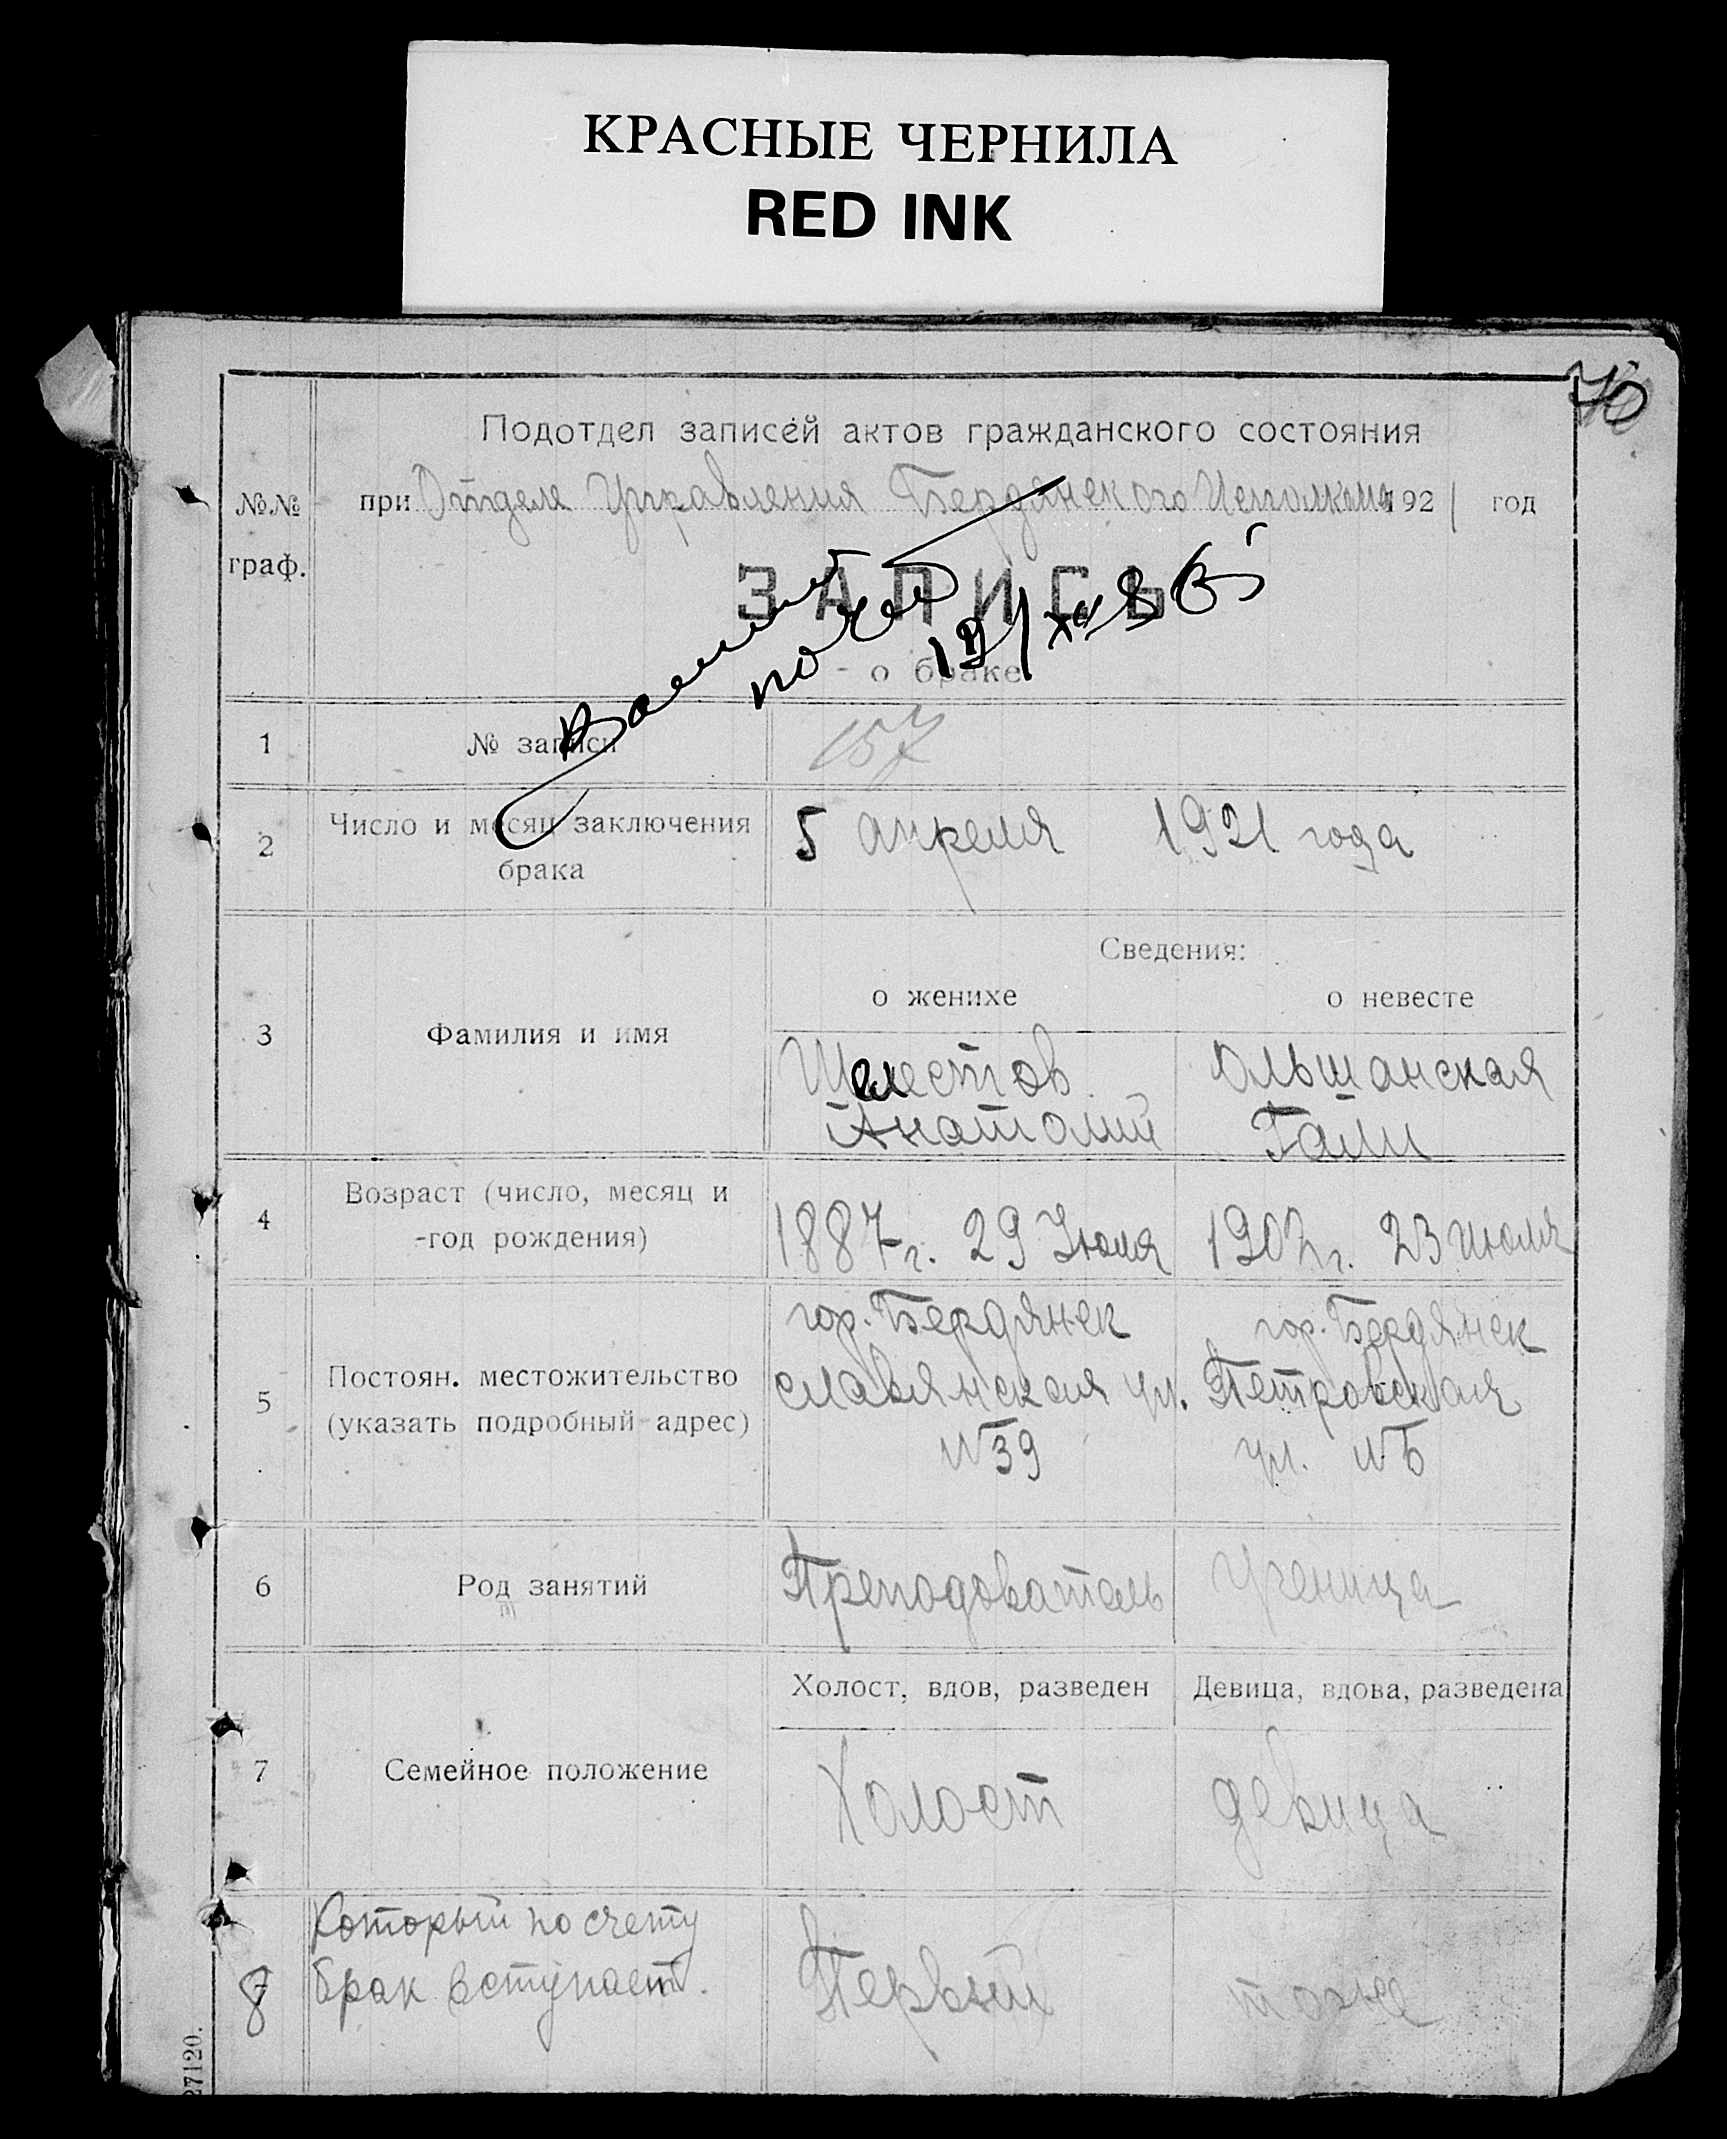 КРАСНЫЕ ЧЕРНИЛА
RED INK
Подотдел записей актов гражданского состояния
№№ граф.
при Отделе Управления Бердянского Исполкома 1921 год
ЗАПИСЬ
о браке
1 № записи 157
2 Число и месяц заключения брака 5 апреля 1921 года
Сведения:
о женихе о невесте
3 Фамилия и имя
Шелестов Ольшанская
Анатолий Гали
4 Возраст (число, месяц и
год рождения)
1887 г. 29 Июля 1902 г. 23 июля
5 Постоян. местожительство
(указать подробный адрес)
гор. Бердянск гор. Бердянск
славянская ул. Петровская
№39 ул. №
6 Род занятий Преподователь Ученица
Холост, вдов, разведен Девица, вдова, разведена
7 Семейное положение Холост девица
Который по счету
8 брак вступает. Первый тоже
27120.